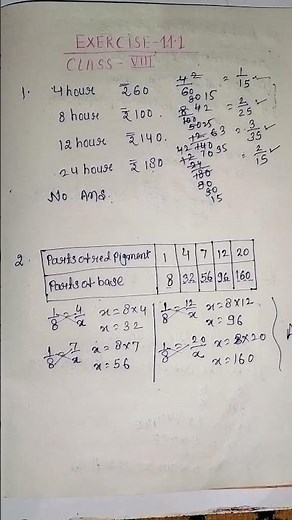 EXERCISE-11.1
CLASS- VIII
1. 4 hour ₹60 4/60 = 1/15 ✓
8 hour ₹100. 8/100 = 2/25 ✓
12 hour ₹140. 12/140 = 3/35 ✓
24 hour ₹180 24/180 = 2/15 ✓
No Ans.
2. Parts of red Pigment 1 4 7 12 20
Parts of base 8 32 56 96 160
1/8 = 4/x x = 8×4 1/8 = 12/x x = 8×12
x = 32 x = 96
1/8 = 7/x x = 8×7 1/8 = 20/x x = 8×20
x = 56 x = 160